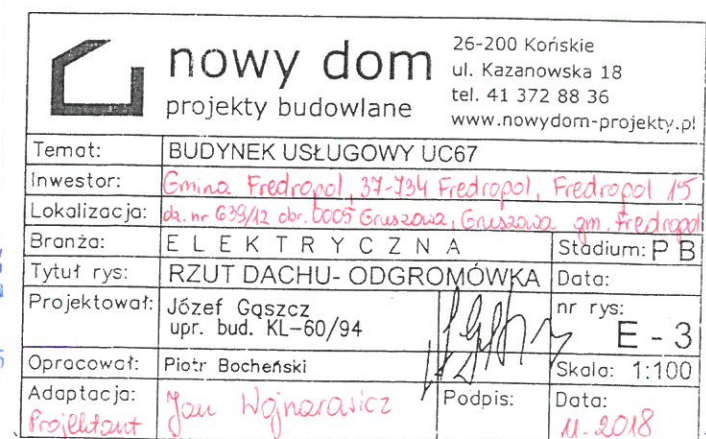 nowy dom
projekty budowlane
26-200 Końskie
ul. Kazanowska 18
tel. 41 372 88 36
www.nowydom-projekty.pl
Temat: BUDYNEK USŁUGOWY UC67
Inwestor: Gmina Fredropol, 37-734 Fredropol, Fredropol 15
Lokalizacja: dz. nr 639/12 obr. 0005 Gruszowa, Gruszowa gm. Fredropol
Branża: ELEKTRYCZNA Stadium: PB
Tytuł rys: RZUT DACHU- ODGROMÓWKA Data:
Projektował: Józef Gąszcz
upr. bud. KL-60/94
nr rys:
E - 3
Opracował: Piotr Bocheński Skala: 1:100
Adaptacja: Jan Wojnarowicz Podpis: Data:
Projektant 11.2018